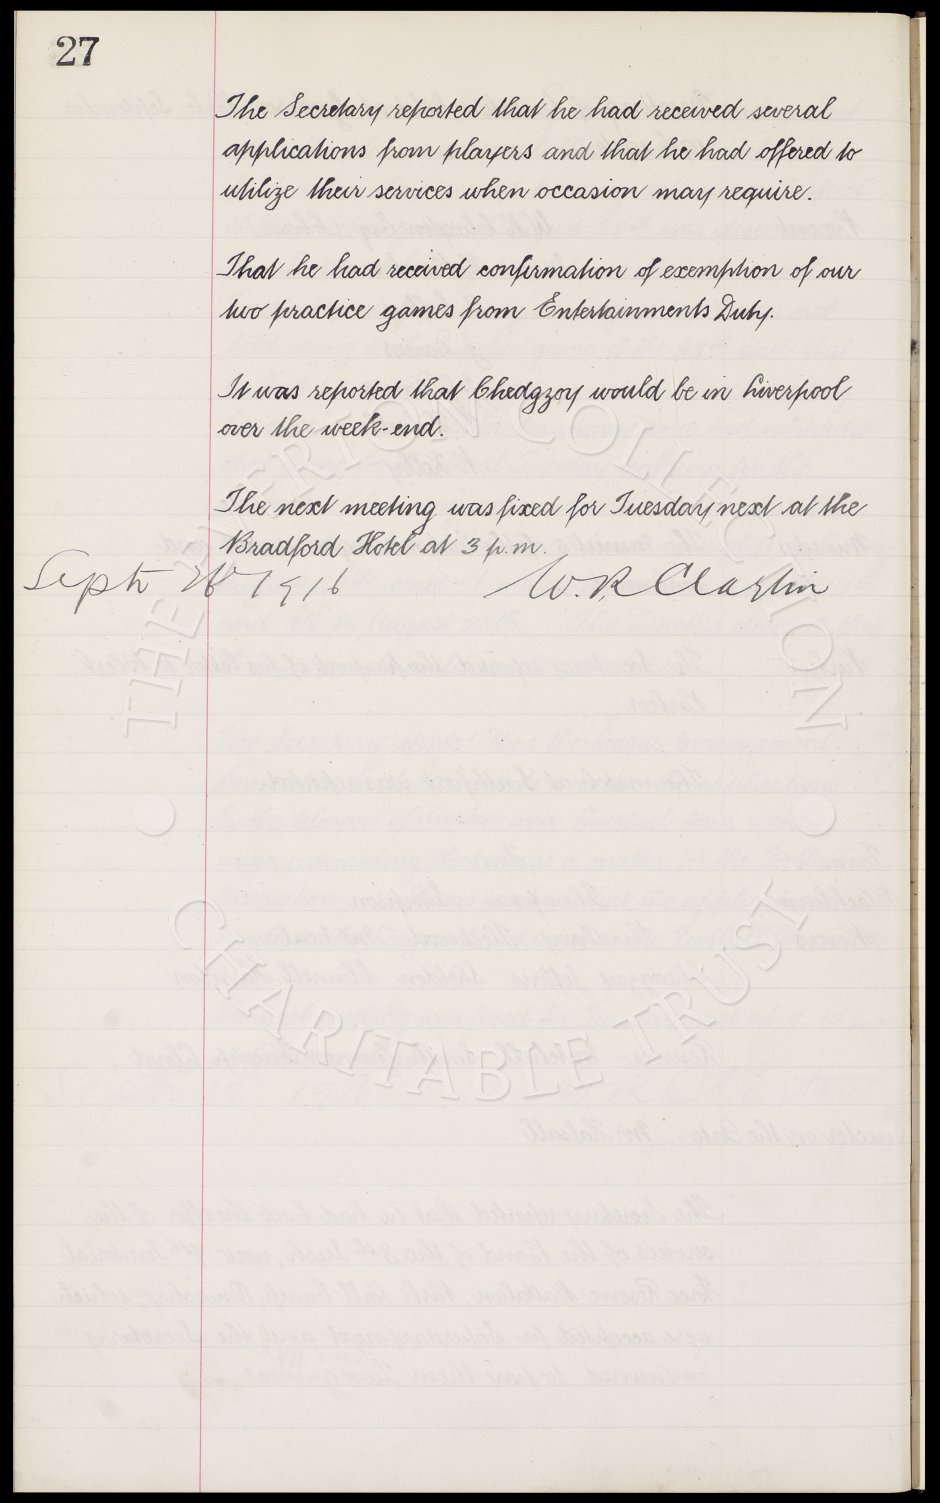 27
The Secretary reported that he had received several
applications from players and that he had offered to
utilize their services when occasion may require.
That he had received confirmation of exemption of our
two practice games from Entertainments Duty.
It was reported that Chedgzoy would be in Liverpool
over the week-end.
The next meeting was fixed for Tuesday next at the
Bradford Hotel at 3 p.m.
Sept 1916 W. R. Clayton
THE EVERTON COLLECTION
CHARITABLE TRUST